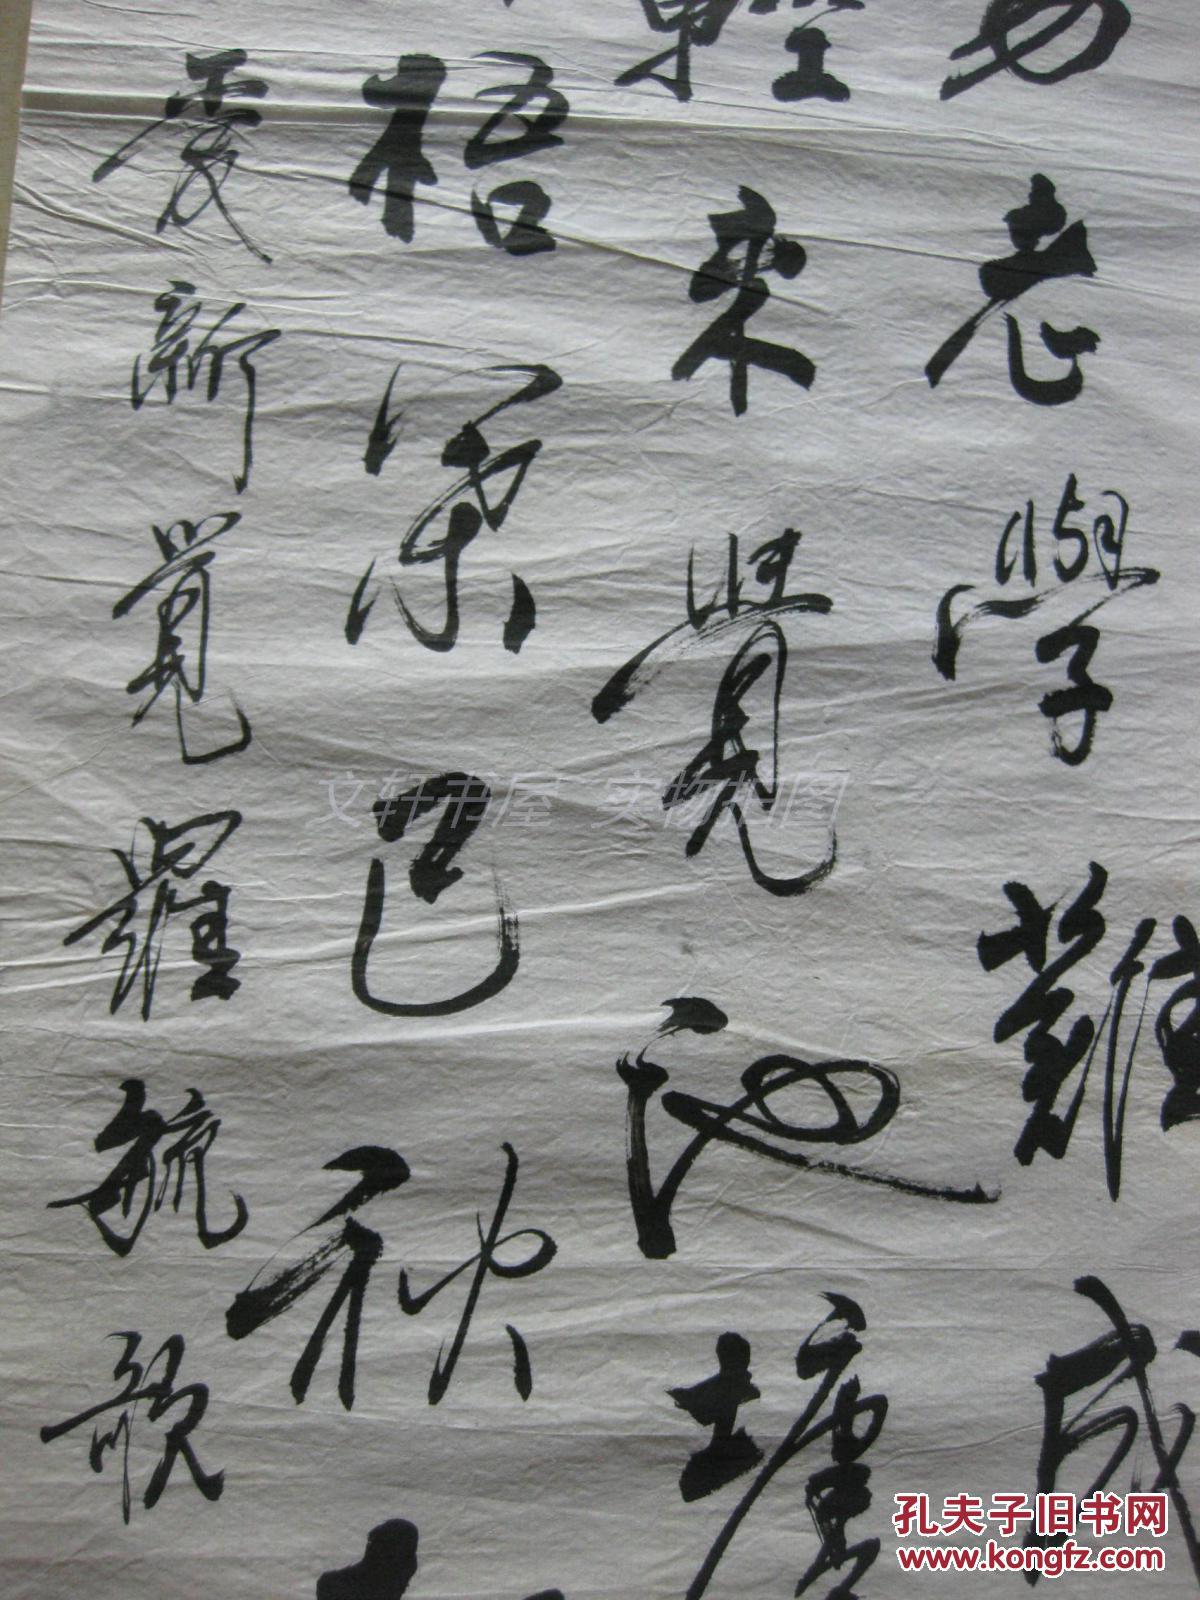 易老學難成
輕来覺池塘
梧葉已秋
愛新覺羅毓歌
文轩书屋 实物拍图
孔夫子旧书网
www.kongfz.com